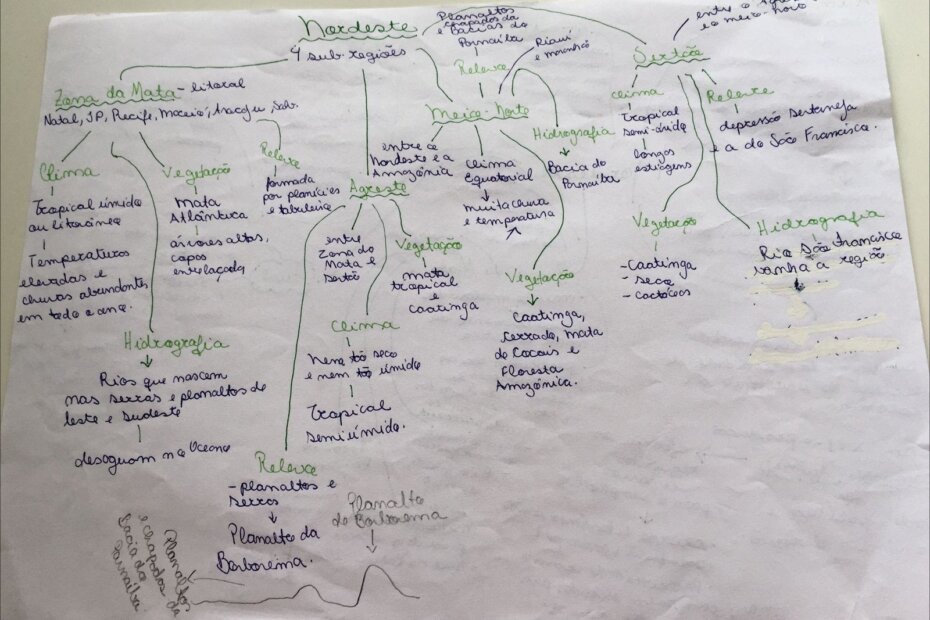 Nordeste
4 sub-regiões
Planaltos
chapadas da
e Bacias do
Parnaíba
Relevo
Piauí
e maranhão
entre o Agreste
e o meio-norte
Zona da Mata - litoral
Natal, JP, Recife, Maceió, Aracaju, Sal.
Clima
Tropical úmido
ou litorâneo
Temperaturas
elevadas e
chuvas abundantes
em todo o ano.
Vegetação
Mata
Atlântica
árvores altas,
copas
entrelaçada
Relevo
formada
por planícies
e tabuleiro
Hidrografia
Rios que nascem
nas serras e planaltos do
leste e sudeste
desaguam no Oceano
Agreste
entre
Zona da
Mata e
Sertão
Vegetação
mata
tropical
e
Caatinga
Clima
Nem tão seco
e nem tão úmido
Tropical
Semiúmido.
Relevo
- planaltos e
serras
Planalto da
Borborema.
Meio-Norte
entre o
Nordeste e a
Amazônia
Clima
Equatorial
muita chuva
e temperatura
Hidrografia
Bacia do
Parnaíba
Vegetação
Caatinga,
Cerrado, Mata
de Cocais e
Floresta
Amazônica.
Sertão
Clima
Tropical
semi-árido
longos
estiagens
Relevo
depressão Sertaneja
e a do São Francisco.
Vegetação
- Caatinga
- seca
- cactáceas
Hidrografia
Rio São Francisco
banha a região
Planalto
da Borborema
Planaltos
e chapadas da
bacia do
Parnaíba